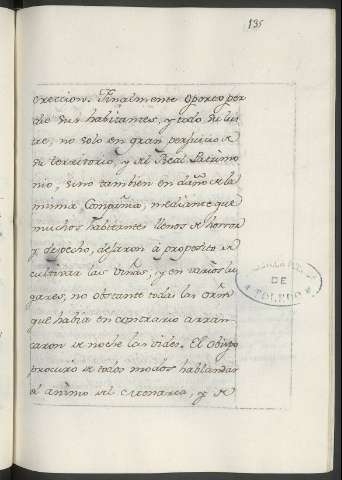 135
dreccion. Finalmente Oporto per
dio sus habitantes, y todo su lus
tre, no solo en gran perjuicio de
su territorio, y del Real Patrimo
nio, sino tambien en daño de la
misma Compañia, mediante que
muchos habitantes llenos de horror
y despecho, dejaron à proposito de
cultivar las viñas, y en varios lu
gares, no obstante todas las orns
que habia en contrario arran
caron de noche las vides. El obispo
procuro de todos modos hablandar
el animo del Carvario, y de
DE
TOLEDO